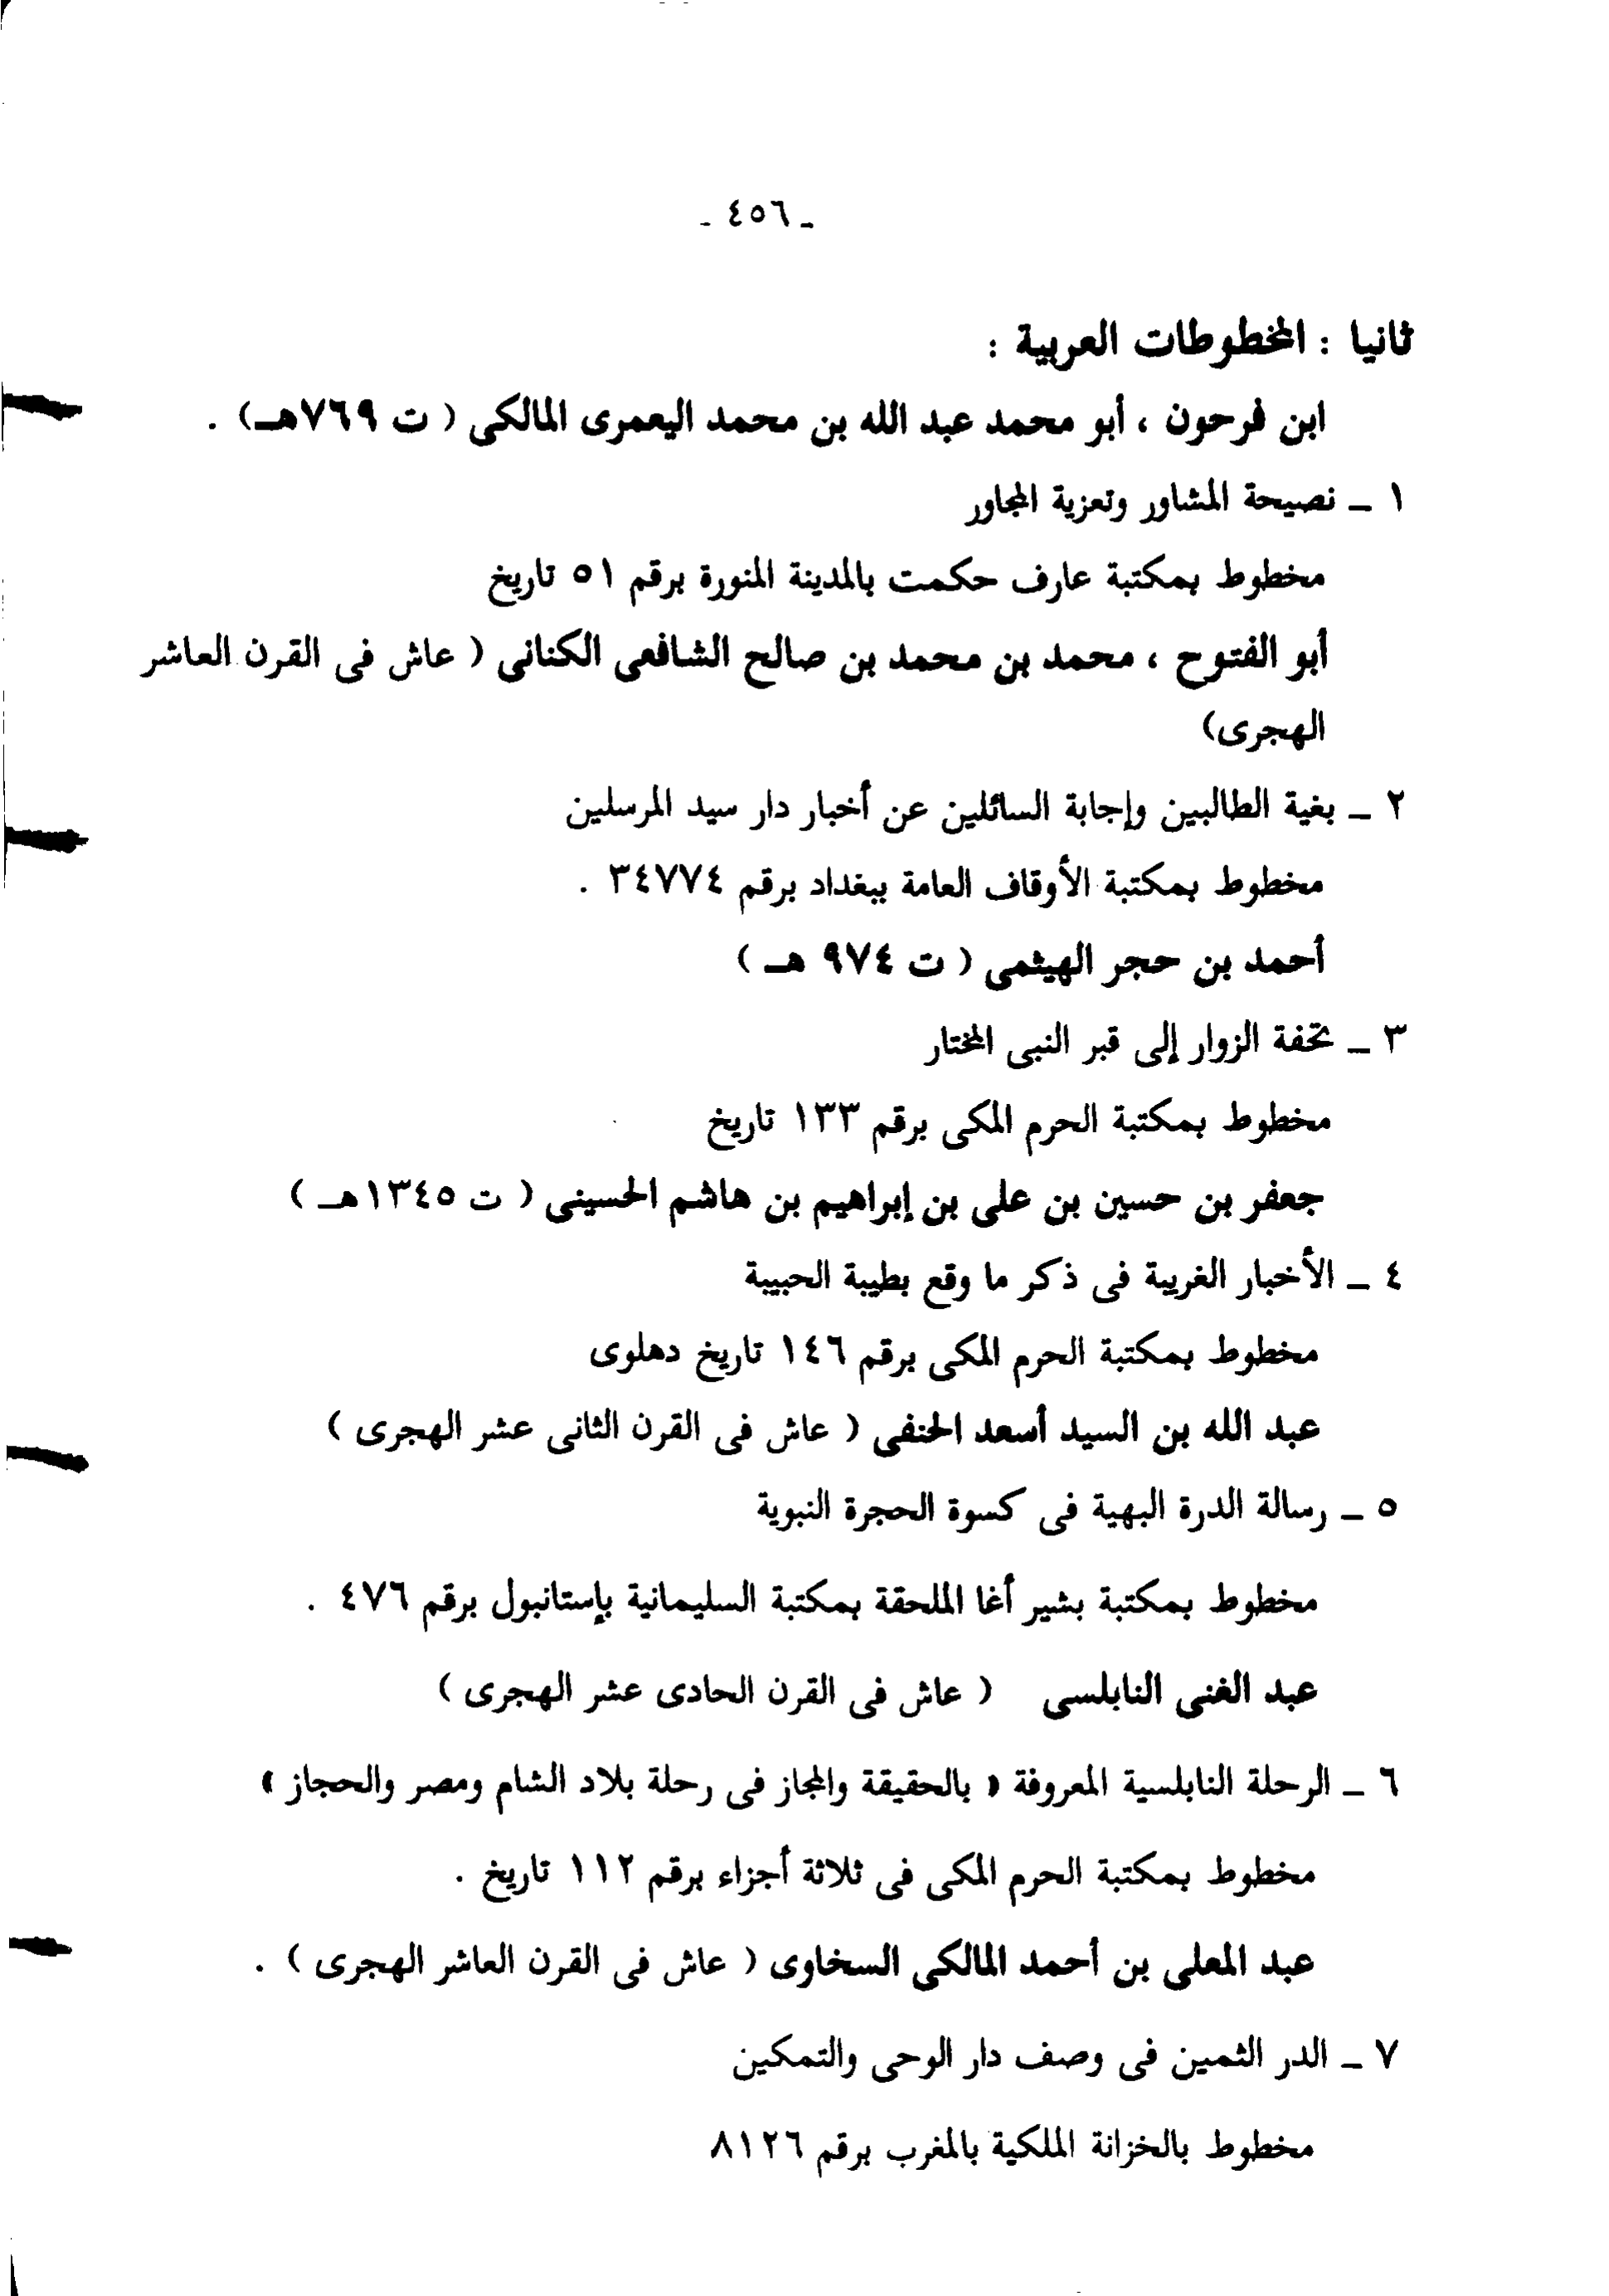 ـ ٤٥٦ ـ
ثانيا : المخطوطات العربية :
ابن فرحون ، أبو محمد عبد الله بن محمد اليعمرى المالكى ( ت ٧٦٩هـ) .
١ ـ نصيحة المشاور وتعزية المجاور
مخطوط بمكتبة عارف حكمت بالمدينة المنورة برقم ٥١ تاريخ
أبو الفتوح ، محمد بن محمد بن صالح الشافعى الكنانى ( عاش فى القرن العاشر
الهجرى)
٢ ـ بغية الطالبين وإجابة السائلين عن أخبار دار سيد المرسلين
مخطوط بمكتبة الأوقاف العامة ببغداد برقم ٣٤٧٧٤ .
أحمد بن حجر الهيثمى ( ت ٩٧٤ هـ )
٣ ـ تحفة الزوار إلى قبر النبى المختار
مخطوط بمكتبة الحرم المكى برقم ١٣٣ تاريخ
جعفر بن حسين بن على بن إبراهيم بن هاشم الحسينى ( ت ١٣٤٥هـ )
٤ ـ الأخبار الغريبة فى ذكر ما وقع بطيبة الحبيبة
مخطوط بمكتبة الحرم المكى برقم ١٤٦ تاريخ دهلوى
عبد الله بن السيد أسعد الحنفى ( عاش فى القرن الثانى عشر الهجرى )
٥ ـ رسالة الدرة البهية فى كسوة الحجرة النبوية
مخطوط بمكتبة بشير أغا الملحقة بمكتبة السليمانية بإستانبول برقم ٤٧٦ .
عبد الغنى النابلسى ( عاش فى القرن الحادى عشر الهجرى )
٦ ـ الرحلة النابلسية المعروفة « بالحقيقة والمجاز فى رحلة بلاد الشام ومصر والحجاز »
مخطوط بمكتبة الحرم المكى فى ثلاثة أجزاء برقم ١١٢ تاريخ .
عبد المعلى بن أحمد المالكى السخاوى ( عاش فى القرن العاشر الهجرى ) .
٧ ـ الدر الثمين فى وصف دار الوحى والتمكين
مخطوط بالخزانة الملكية بالمغرب برقم ٨١٢٦